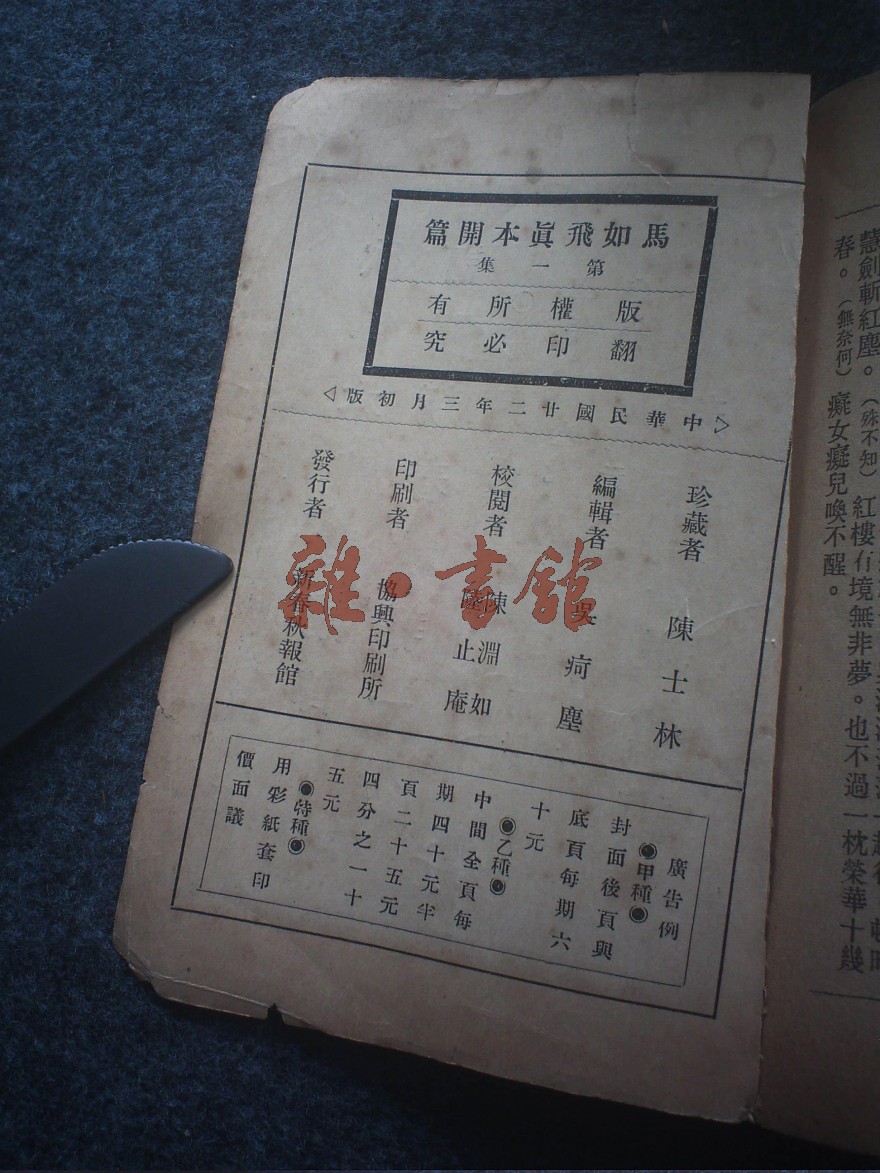 馬如飛眞本開篇
第一集
版權所有
翻印必究
中華民國廿二年三月初版
珍藏者 陳士林
編輯者 吳疴塵
校閱者 陳淵如 陸止庵
印刷者 協興印刷所
發行者 新春秋報館
廣告例
甲種
封面後頁與
底頁每期六
十元
乙種
中間全頁每
期四十元半
頁二十五元
四分之一十
五元
特種
用彩紙套印
價面議
慧劍斬紅塵。（殊不知）紅樓有境無非夢。也不過一枕榮華十幾
春。（無奈何）癡女癡兒喚不醒。
雜·書館